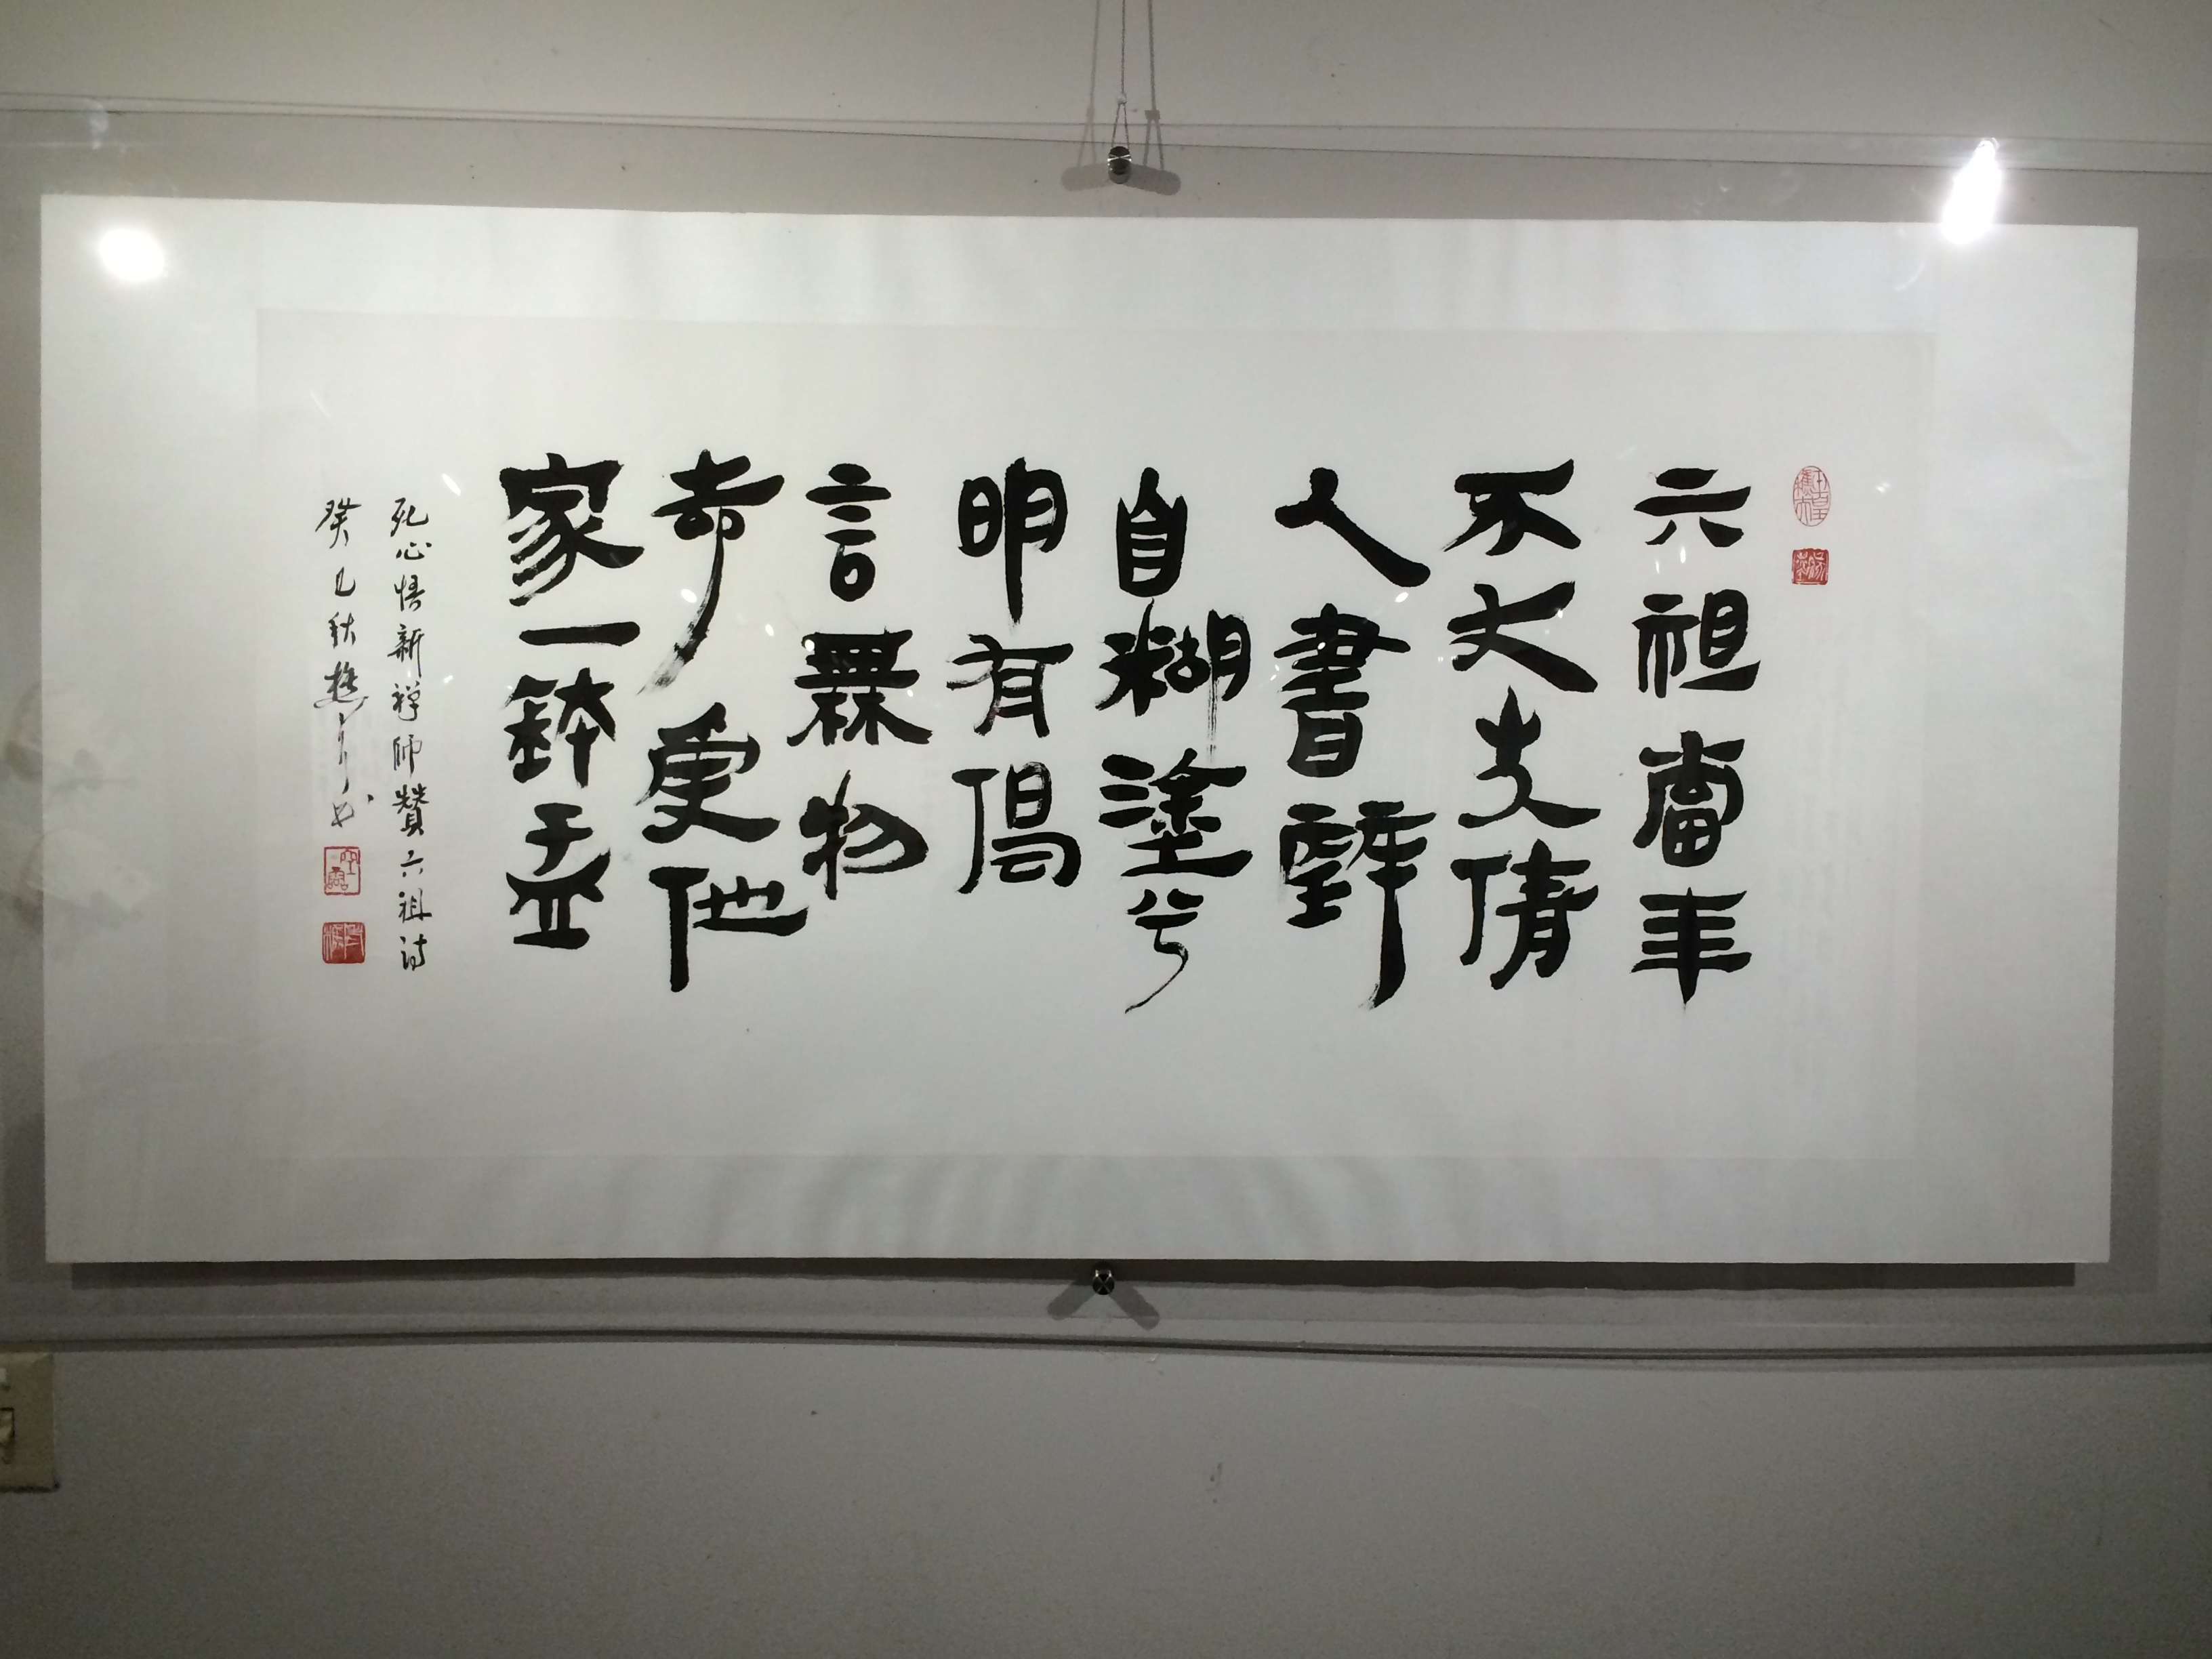 六祖當年
不丈夫倩
人書壁
自糊塗兮
明有偈
言無物
却受他
家一鉢盂
死心悟新禅師贊六祖詩
癸巳秋